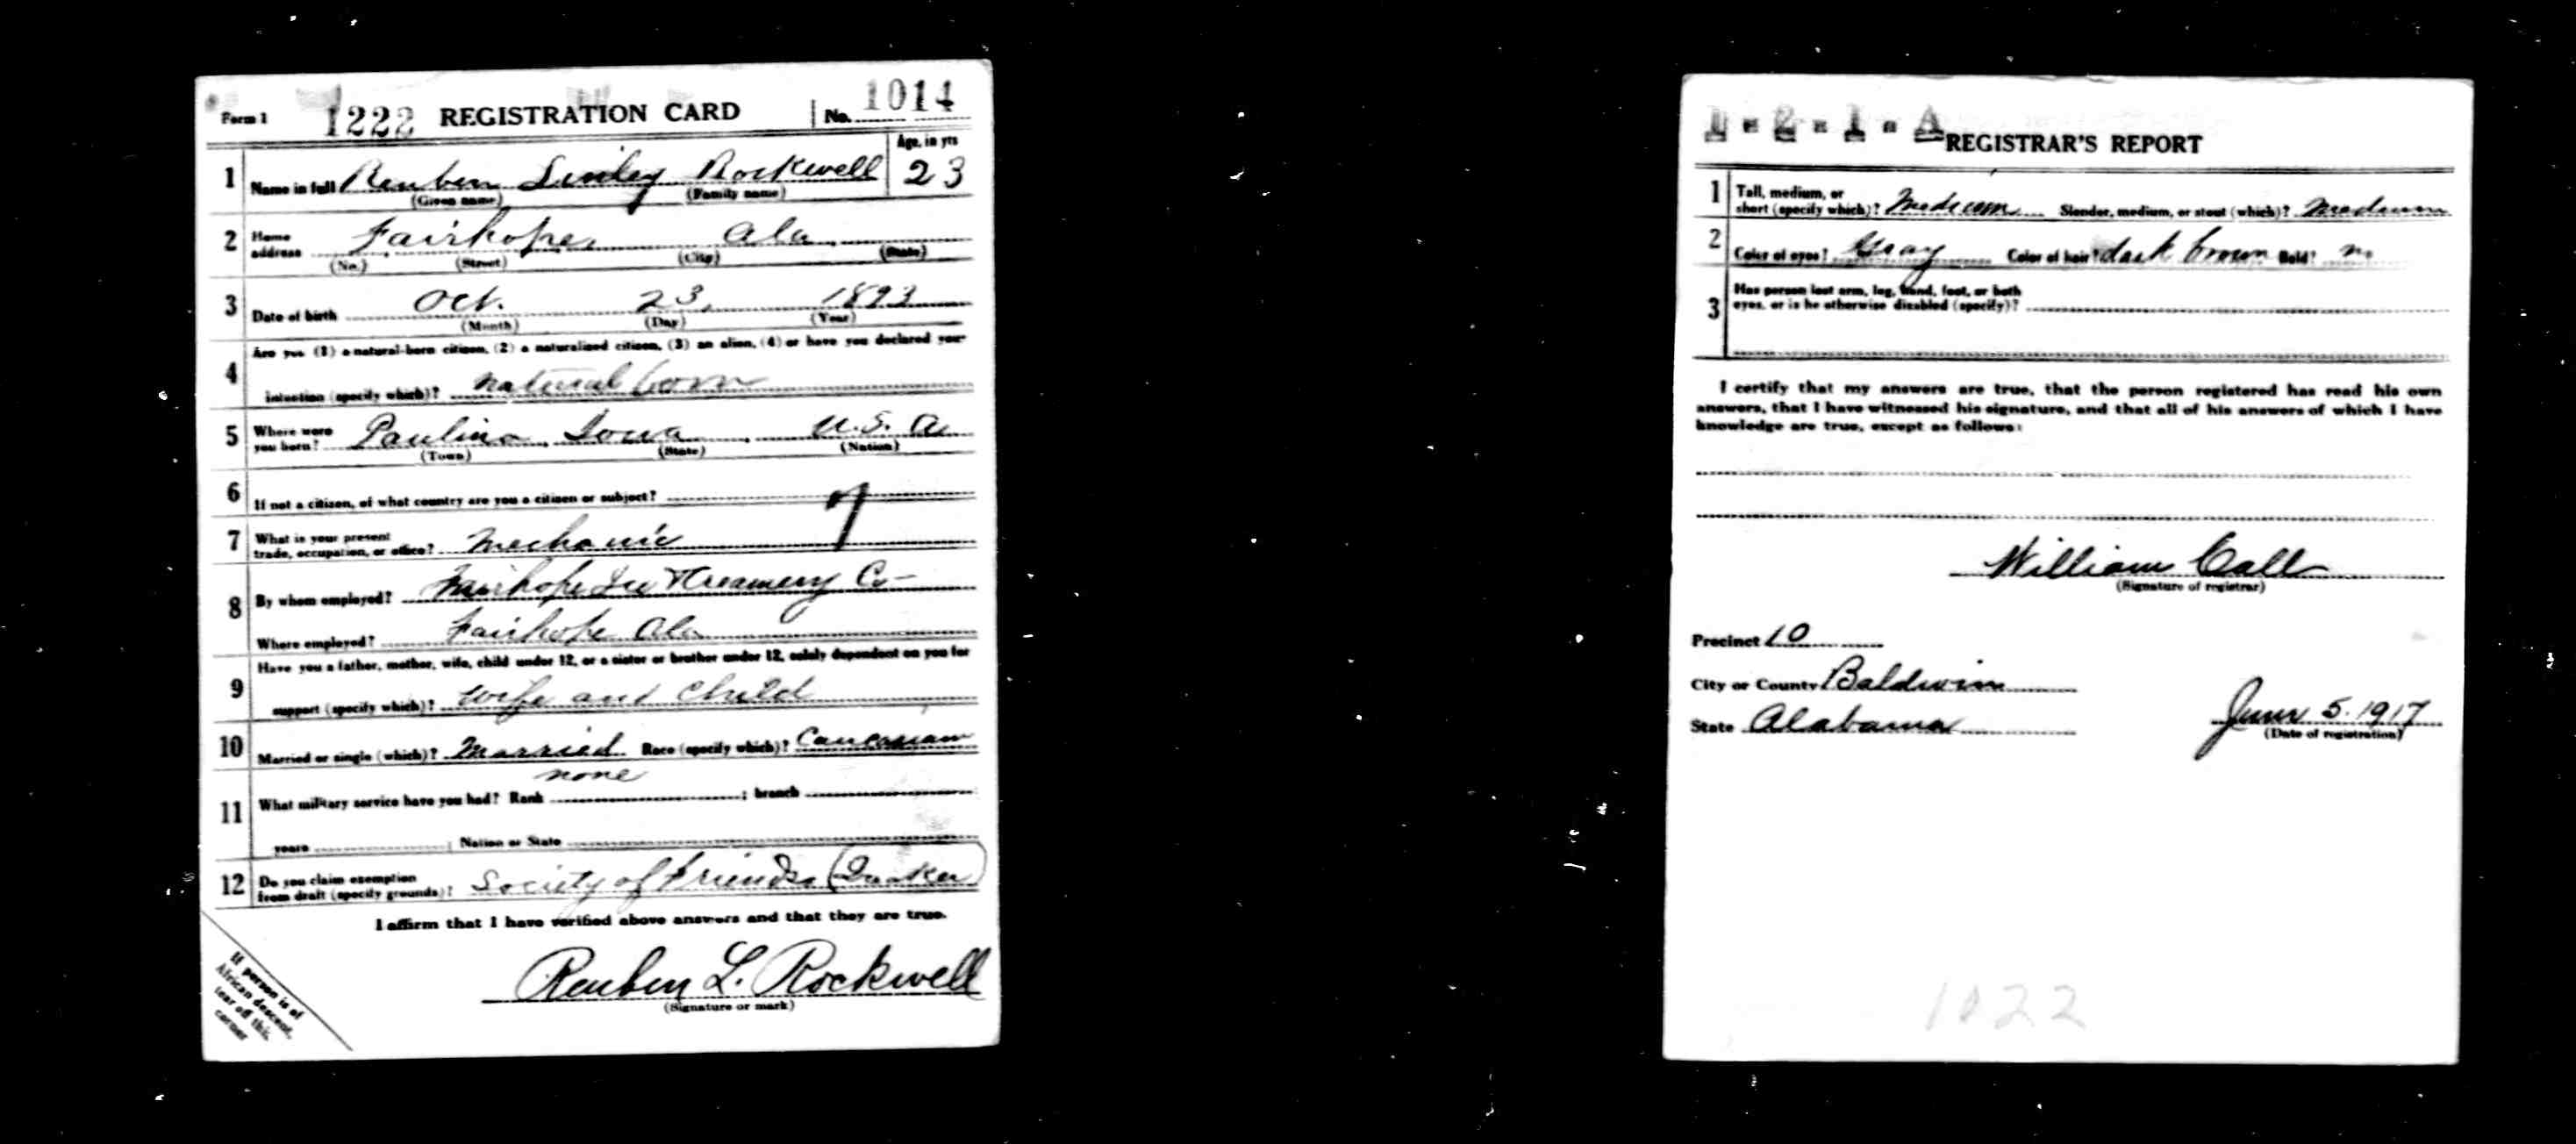 Form 1 1222 REGISTRATION CARD No. 1014
Age, in yrs
1 Name in full Reuben Rockwell 23
(Given name) (Family name)
2 Home address Fairhope, Ala.
(No.) (Street) (City) (State)
3 Date of birth Oct. 23, 1893
(Month) (Day) (Year)
4 Are you (1) a natural-born citizen, (2) a naturalized citizen, (3) an alien, (4) or have you declared your
intention (specify which)? natural born
5 Where were you born? Paulina, Iowa, U.S.A.
(Town) (State) (Nation)
6 If not a citizen, of what country are you a citizen or subject?
7 What is your present trade, occupation, or office? Mechanic
8 By whom employed? Fairhope Ice & Creamery Co-
Where employed? Fairhope Ala
9 Have you a father, mother, wife, child under 12, or a sister or brother under 12, solely dependent on you for
support (specify which)? wife and child
10 Married or single (which)? Married Race (specify which)? Caucasian
none
11 What military service have you had? Rank ; branch
years ; Nation or State
12 Do you claim exemption from draft (specify grounds)? Society of Friends (Quaker)
I affirm that I have verified above answers and that they are true.
Reuben L. Rockwell
(Signature or mark)
If person is of
African descent,
tear off this
corner
1-2-1-A REGISTRAR'S REPORT
1 Tall, medium, or short (specify which)? Medium Slender, medium, or stout (which)? Medium
2 Color of eyes? Gray Color of hair? dark brown Bald? no
3 Has person lost arm, leg, hand, foot, or both
eyes, or is he otherwise disabled (specify)?
I certify that my answers are true, that the person registered has read his own
answers, that I have witnessed his signature, and that all of his answers of which I have
knowledge are true, except as follows:
William Call
(Signature of registrar)
Precinct 10
City or County Baldwin
State Alabama June 5. 1917
(Date of registration)
1022